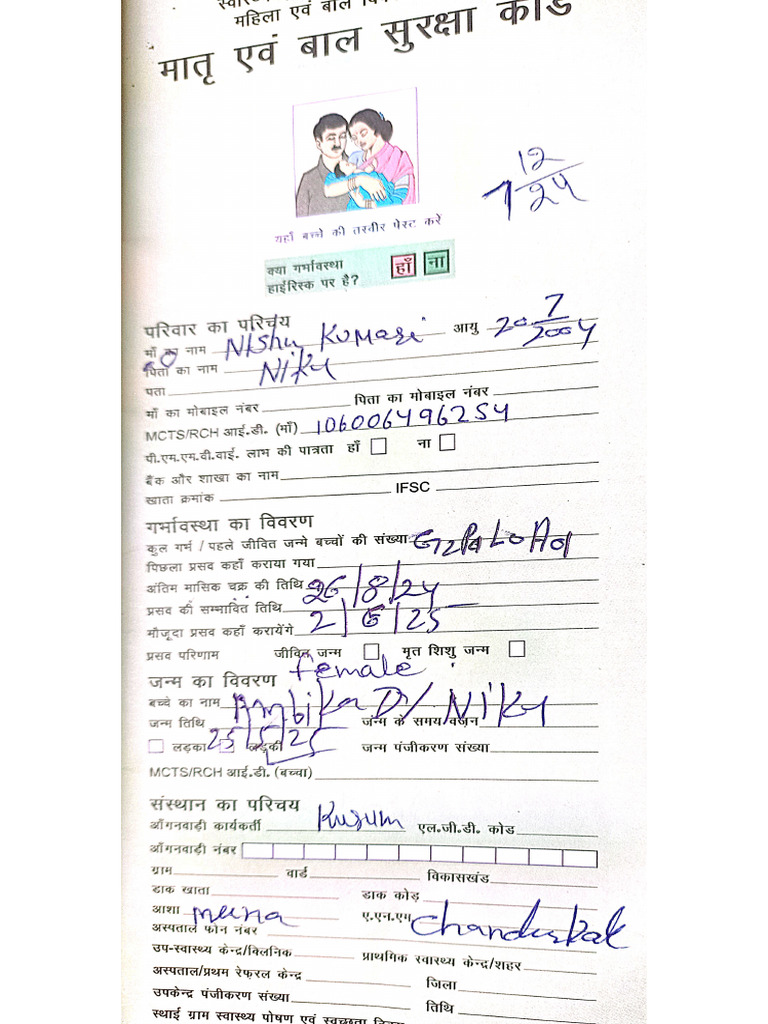 महिला एवं बाल
मातृ एवं बाल सुरक्षा कार्ड
12
24
यहाँ बच्चे की तस्वीर पेस्ट करें
क्या गर्भावस्था
हाईरिस्क पर है? हाँ ना
परिवार का परिचय
माँ का नाम Nishu Kumari आयु 20 7/2004
पिता का नाम Niku
पता
माँ का मोबाइल नंबर पिता का मोबाइल नंबर
MCTS/RCH आई.डी. (माँ) 106006496254
पी.एम.एम.वी.वाई. लाभ की पात्रता हाँ ना
बैंक और शाखा का नाम
खाता क्रमांक IFSC
गर्भावस्था का विवरण
कुल गर्भ / पहले जीवित जन्मे बच्चों की संख्या
पिछला प्रसव कहाँ कराया गया
अंतिम मासिक चक्र की तिथि 26/8/24
प्रसव की सम्भावित तिथि
मौजूदा प्रसव कहाँ करायेंगे 2/6/25
प्रसव परिणाम जीवित जन्म मृत शिशु जन्म
जन्म का विवरण female
बच्चे का नाम Ambika D/ Niku
जन्म तिथि जन्म के समय वजन
लड़का 25/5/25 लड़की जन्म पंजीकरण संख्या
MCTS/RCH आई.डी. (बच्चा)
संस्थान का परिचय
आँगनवाड़ी कार्यकर्ती Kusum एल.जी.डी. कोड
आँगनवाड़ी नंबर
ग्राम वार्ड विकासखंड
डाक खाता डाक कोड़
आशा meena ए.एन.एम Chanderkal
अस्पताल फोन नंबर
उप-स्वास्थ्य केन्द्र/क्लिनिक प्राथमिक स्वास्थ्य केन्द्र/शहर
अस्पताल/प्रथम रेफरल केन्द्र जिला
उपकेन्द्र पंजीकरण संख्या तिथि
स्थाई ग्राम स्वास्थ्य पोषण एवं स्वच्छता